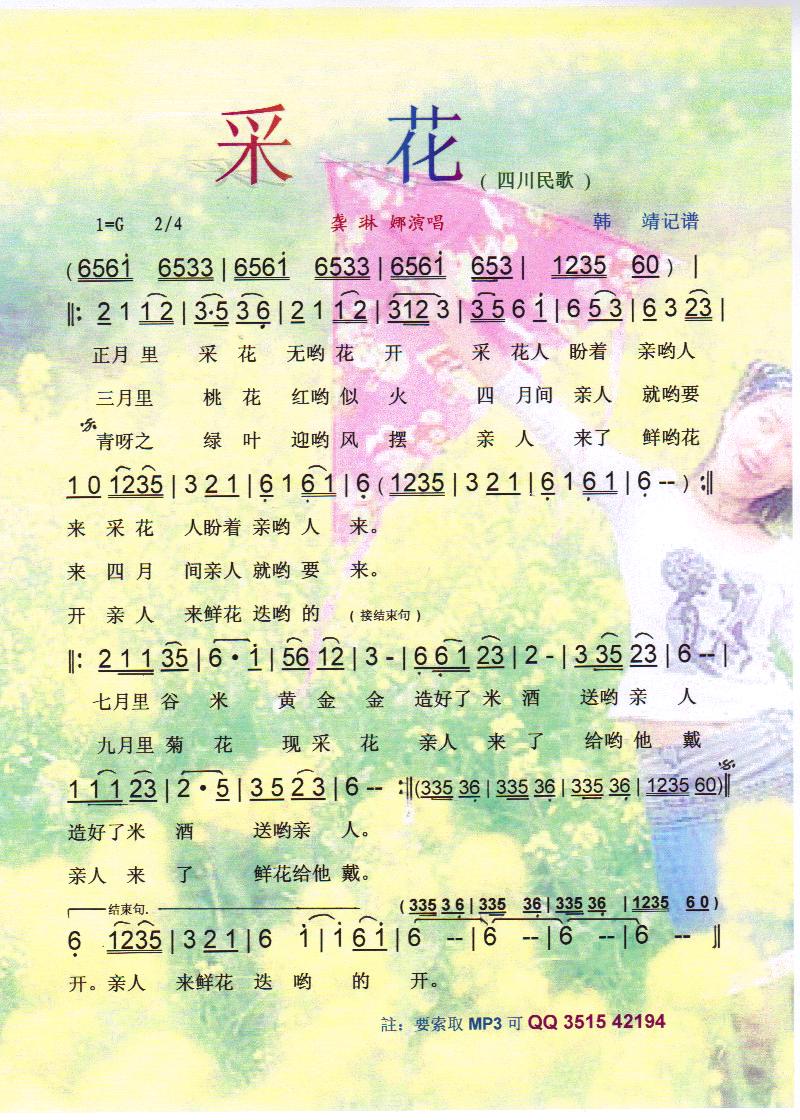 采 花 ( 四川民歌 )
1=G 2/4 龚 琳 娜演唱 韩 靖记谱
( 6561 6533 | 6561 6533 | 6561 653 | 1235 60 ) |
‖: 2 1 1 2 | 3·5 3 6 | 2 1 1 2 | 312 3 | 3 5 6 1 | 6 5 3 | 6 3 23 |
正月 里 采 花 无哟 花 开 采 花人 盼着 亲哟人
三月里 桃 花 红哟 似 火 四 月间 亲人 就哟要
青呀之 绿 叶 迎哟 风 摆 亲 人 来了 鲜哟花
1 0 1235 | 3 2 1 | 6 1 6 1 | 6 ( 1235 | 3 2 1 | 6 1 6 1 | 6 -- ) :‖
来 采 花 人盼着 亲哟 人 来。
来 四 月 间亲人 就哟 要 来。
开 亲 人 来鲜花 迭哟 的 ( 接结束句 )
‖: 2 1 1 35 | 6 · 1 | 56 12 | 3 - | 6 6 1 23 | 2 - | 3 35 23 | 6 -- |
七月里 谷 米 黄 金 金 造好了 米 酒 送哟 亲 人
九月里 菊 花 现 采 花 亲人 来 了 给哟 他 戴
1 1 1 23 | 2 · 5 | 3 5 2 3 | 6 -- :‖(335 36 | 335 36 | 335 36 | 1235 60)‖
造好了米 酒 送哟亲 人。
亲人 来 了 鲜花给他 戴。
结束句. ( 335 3 6 | 335 36 | 335 36 | 1235 6 0 )
6 1235 | 3 21 | 6 1 | 1 6 1 | 6 -- | 6 -- | 6 -- | 6 -- ‖
开。亲人 来鲜花 迭 哟 的 开。
註：要索取 MP3 可 QQ 3515 42194